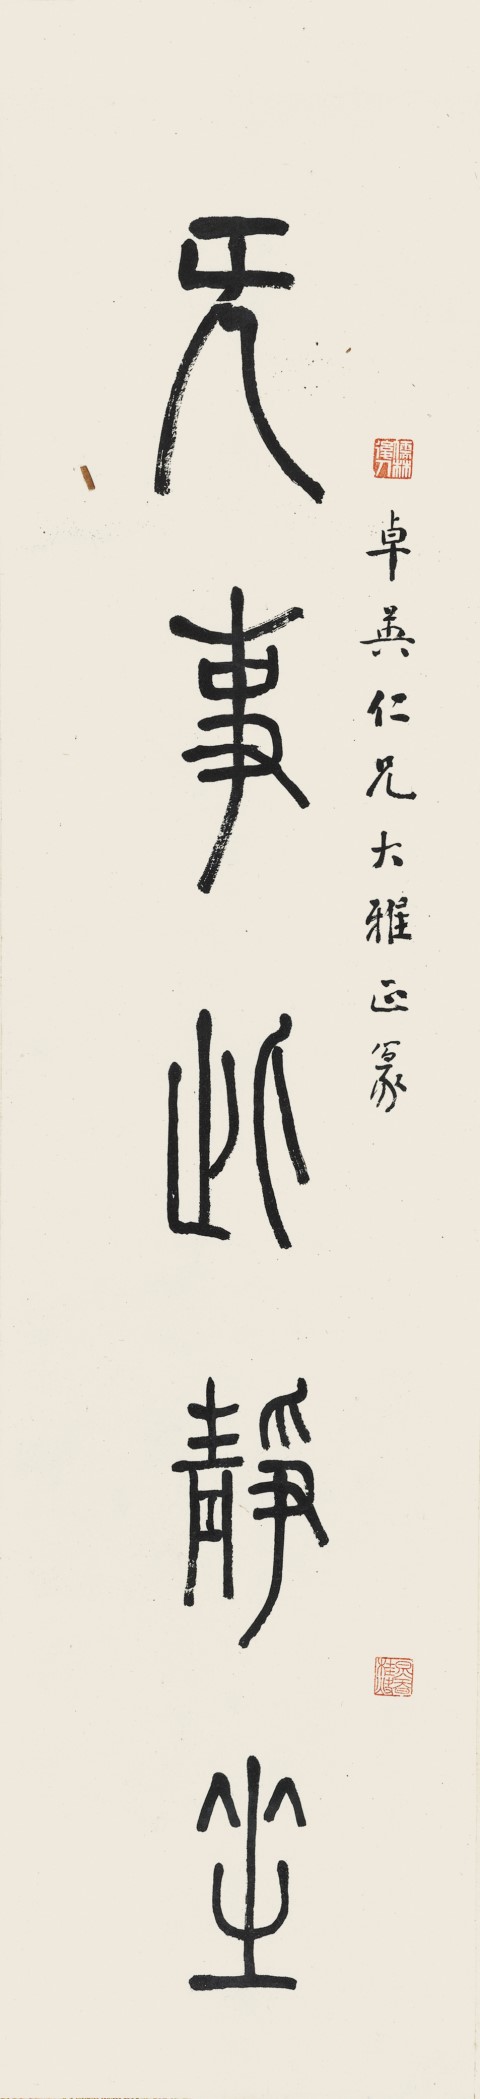 卓英仁兄大雅正篆
无事此靜坐